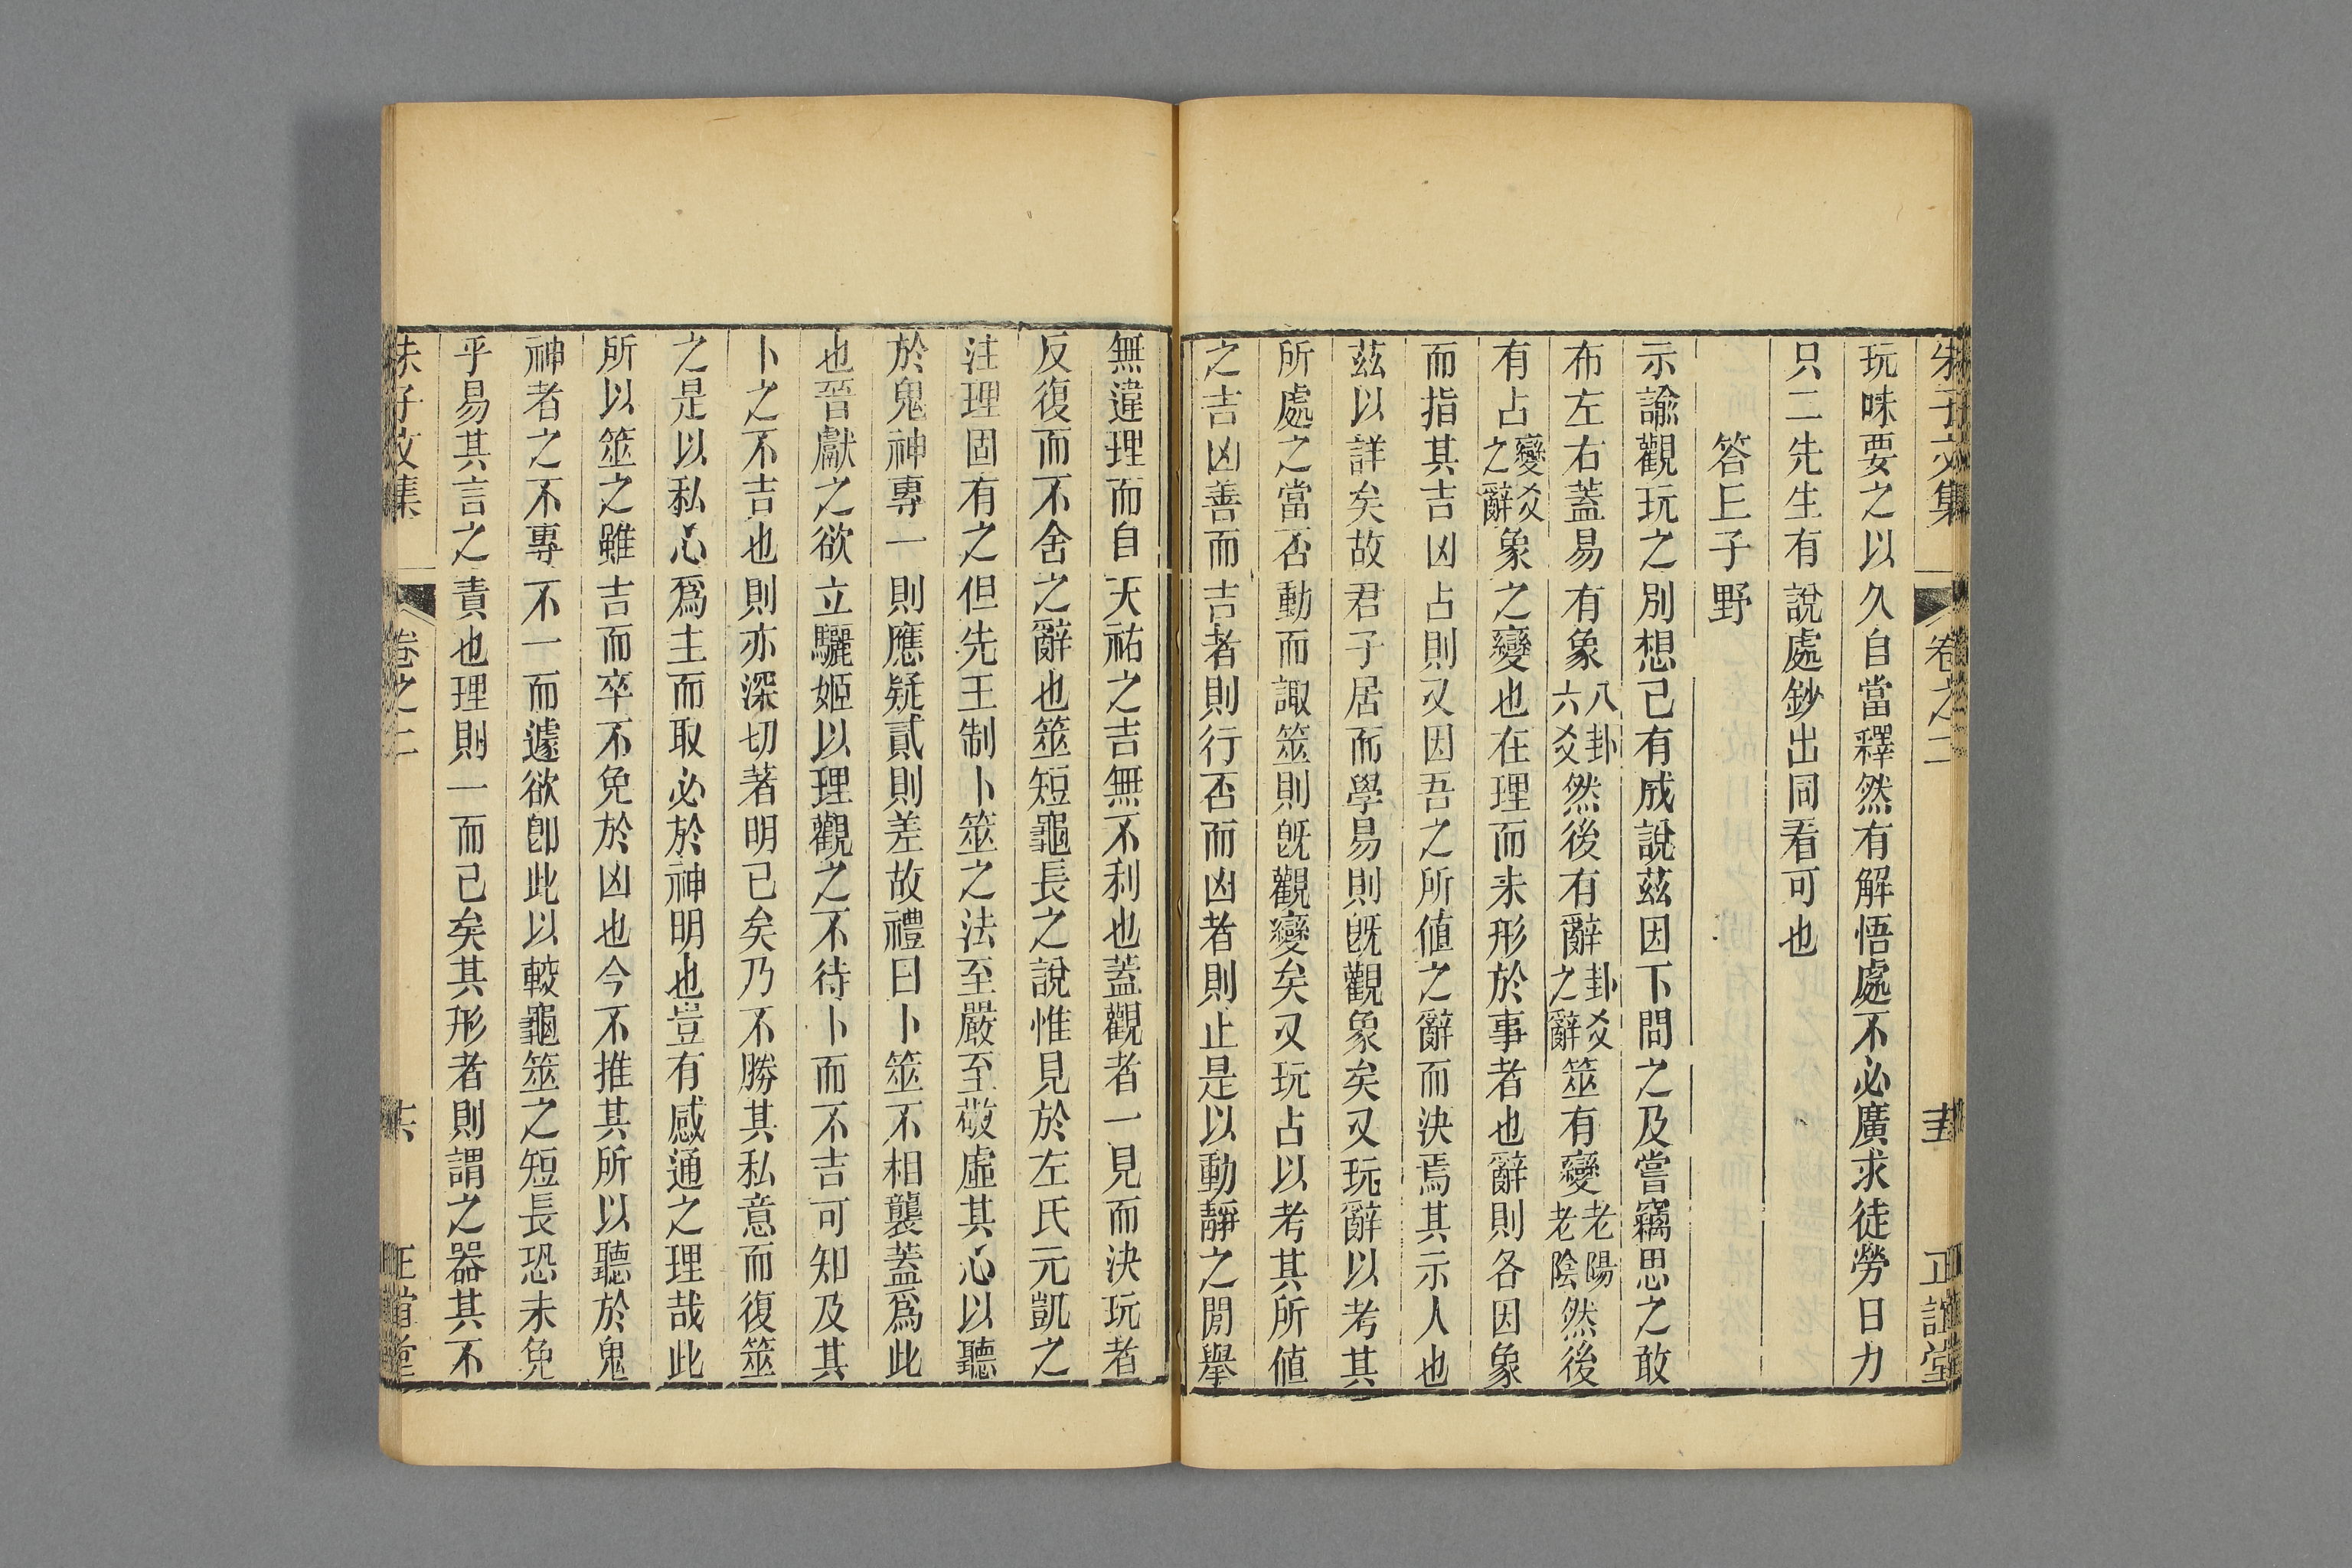 朱子文集 卷之二 正誼堂
玩味要之以久自當釋然有解悟處不必廣求徒勞日力
只二先生有說處鈔出同看可也
答丘子野
示諭觀玩之別想已有成說茲因下問之及嘗竊思之敢
布左右蓋易有象八卦六爻然後有辭卦爻之辭筮有變老陽老陰然後
有占變爻之辭象之變也在理而未形於事者也辭則各因象
而指其吉凶占則又因吾之所值之辭而決焉其示人也
茲以詳矣故君子居而學易則旣觀象矣又玩辭以考其
所處之當否動而諏筮則旣觀變矣又玩占以考其所值
之吉凶善而吉者則行否而凶者則止是以動靜之閒舉
無違理而自天祐之吉無不利也蓋觀者一見而決玩者
反復而不舍之辭也筮短龜長之說惟見於左氏元凱之
注理固有之但先王制卜筮之法至嚴至敬虛其心以聽
於鬼神專一則應疑貳則差故禮曰卜筮不相襲蓋為此
也晉獻之欲立驪姬以理觀之不待卜而不吉可知及其
卜之不吉也則亦深切著明已矣乃不勝其私意而復筮
之是以私心爲主而取必於神明也豈有感通之理哉此
所以筮之雖吉而卒不免於凶也今不推其所以聽於鬼
神者之不專不一而遽欲卽此以較龜筮之短長恐未免
乎易其言之責也理則一而已矣其形者則謂之器其不
朱子文集 卷之二 共 正誼堂